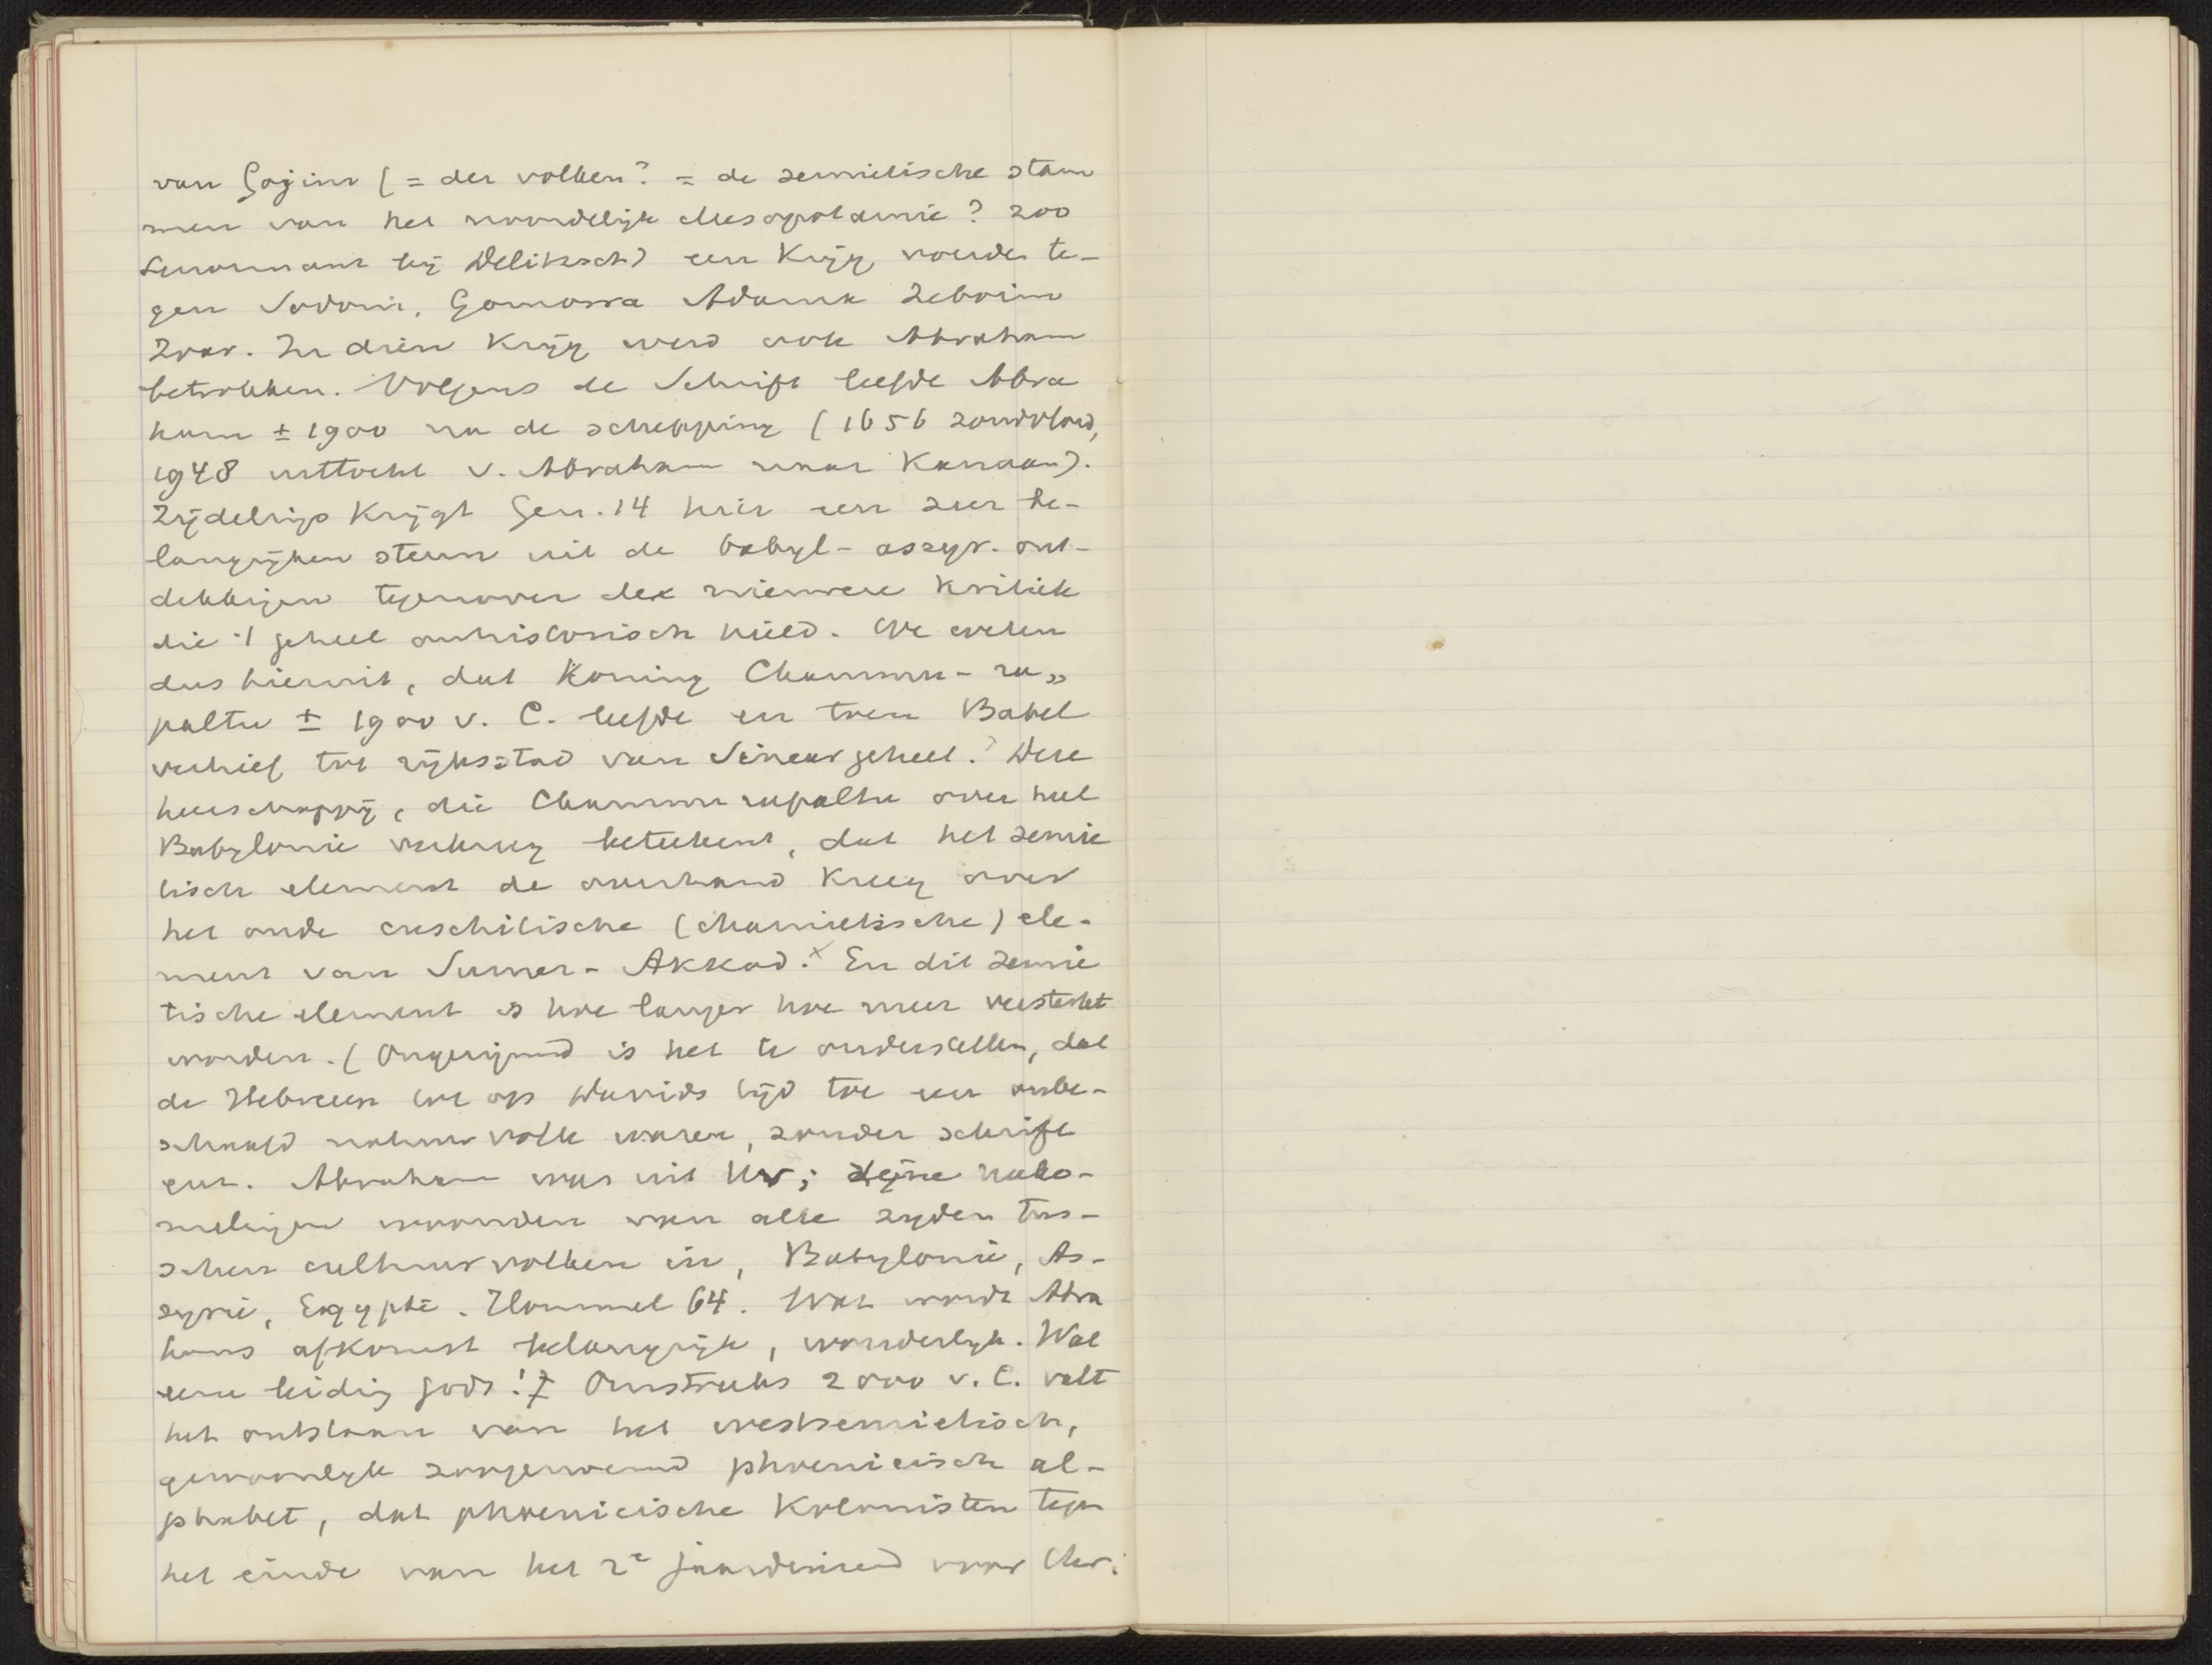 van Gojim (= der volken? = de semietische stam
men van het noordelijk Mesopotamie? zoo
Lenormant bij Delitzsch) een Krijg voerde te-
gen Sodom, Gomorra Adama Zeboim
Zoar. In dien Krijg werd ook Abraham
betrokken. Volgens de Schrift leefde Abra
ham ± 1900 na de schepping (1656 zondvloed,
1948 uittocht v. Abraham naar Kanaan).
Zijdelings Krijgt Gen. 14 hier een zeer be-
langrijken steun uit de babyl-assyr. ont-
dekkingen tegenover de nieuwere Kritiek
die 't geheel onhistorisch hield. We weten
dus hieruit, dat Koning Chammu-ra„
paltu ± 1900 v. C. leefde en toen Babel
verhief tot rijksstad van Sinear geheel. Deze
heerschappij, die Chammurapaltu over heel
Babylonie verkreeg beteekent, dat het semie
tisch element de overhand Kreeg over
het oude cuschitische (chamietische) ele-
ment van Sumer-Akkad.x En dit semie
tische element is hoe langer hoe meer versterkt
worden. (Ongerijmd is het te onderstellen, dat
de Hebreen tot op Davids tijd toe een onbe-
schaafd natuurvolk waren, zonder schrift
enz. Abraham was uit Ur; zijne nako-
melingen woonden van alle zijden tus-
schen cultuurvolken in, Babylonie, As-
syrie, Egypte. Hommel 64. Wat wordt Abra
hams afkomst belangrijk, wonderlijk. Wat
eene leiding Gods! Omstreeks 2000 v. C. valt
het ontstaan van het westsemietisch,
gewoonlijk zoogenoemd phoenicisch al-
phabet, dat phoenicische Kolonisten tegen
het einde van het 2e jaarduizend voor Chr.